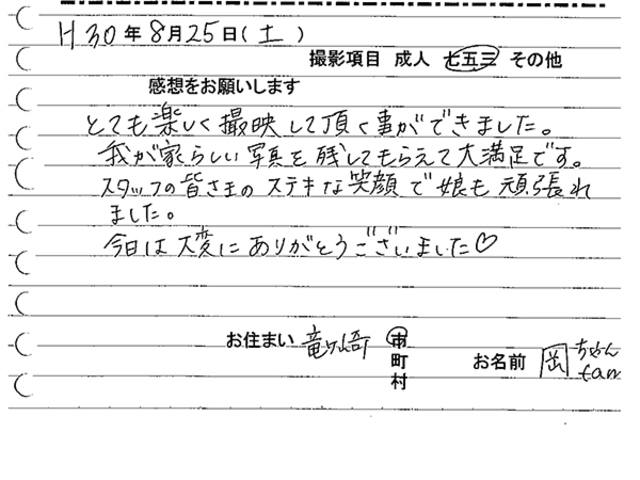 H30年8月25日(土)
撮影項目 成人 七五三 その他
感想をお願いします
とても楽しく撮映して頂く事ができました。
我が家らしい写真を残してもらえて大満足です。
スタッフの皆さまのステキな笑顔で娘も頑張れ
ました。
今日は大変にありがとうございました♡
お住まい 竜ヶ崎 市
町
村
お名前 岡ちゃん
fam